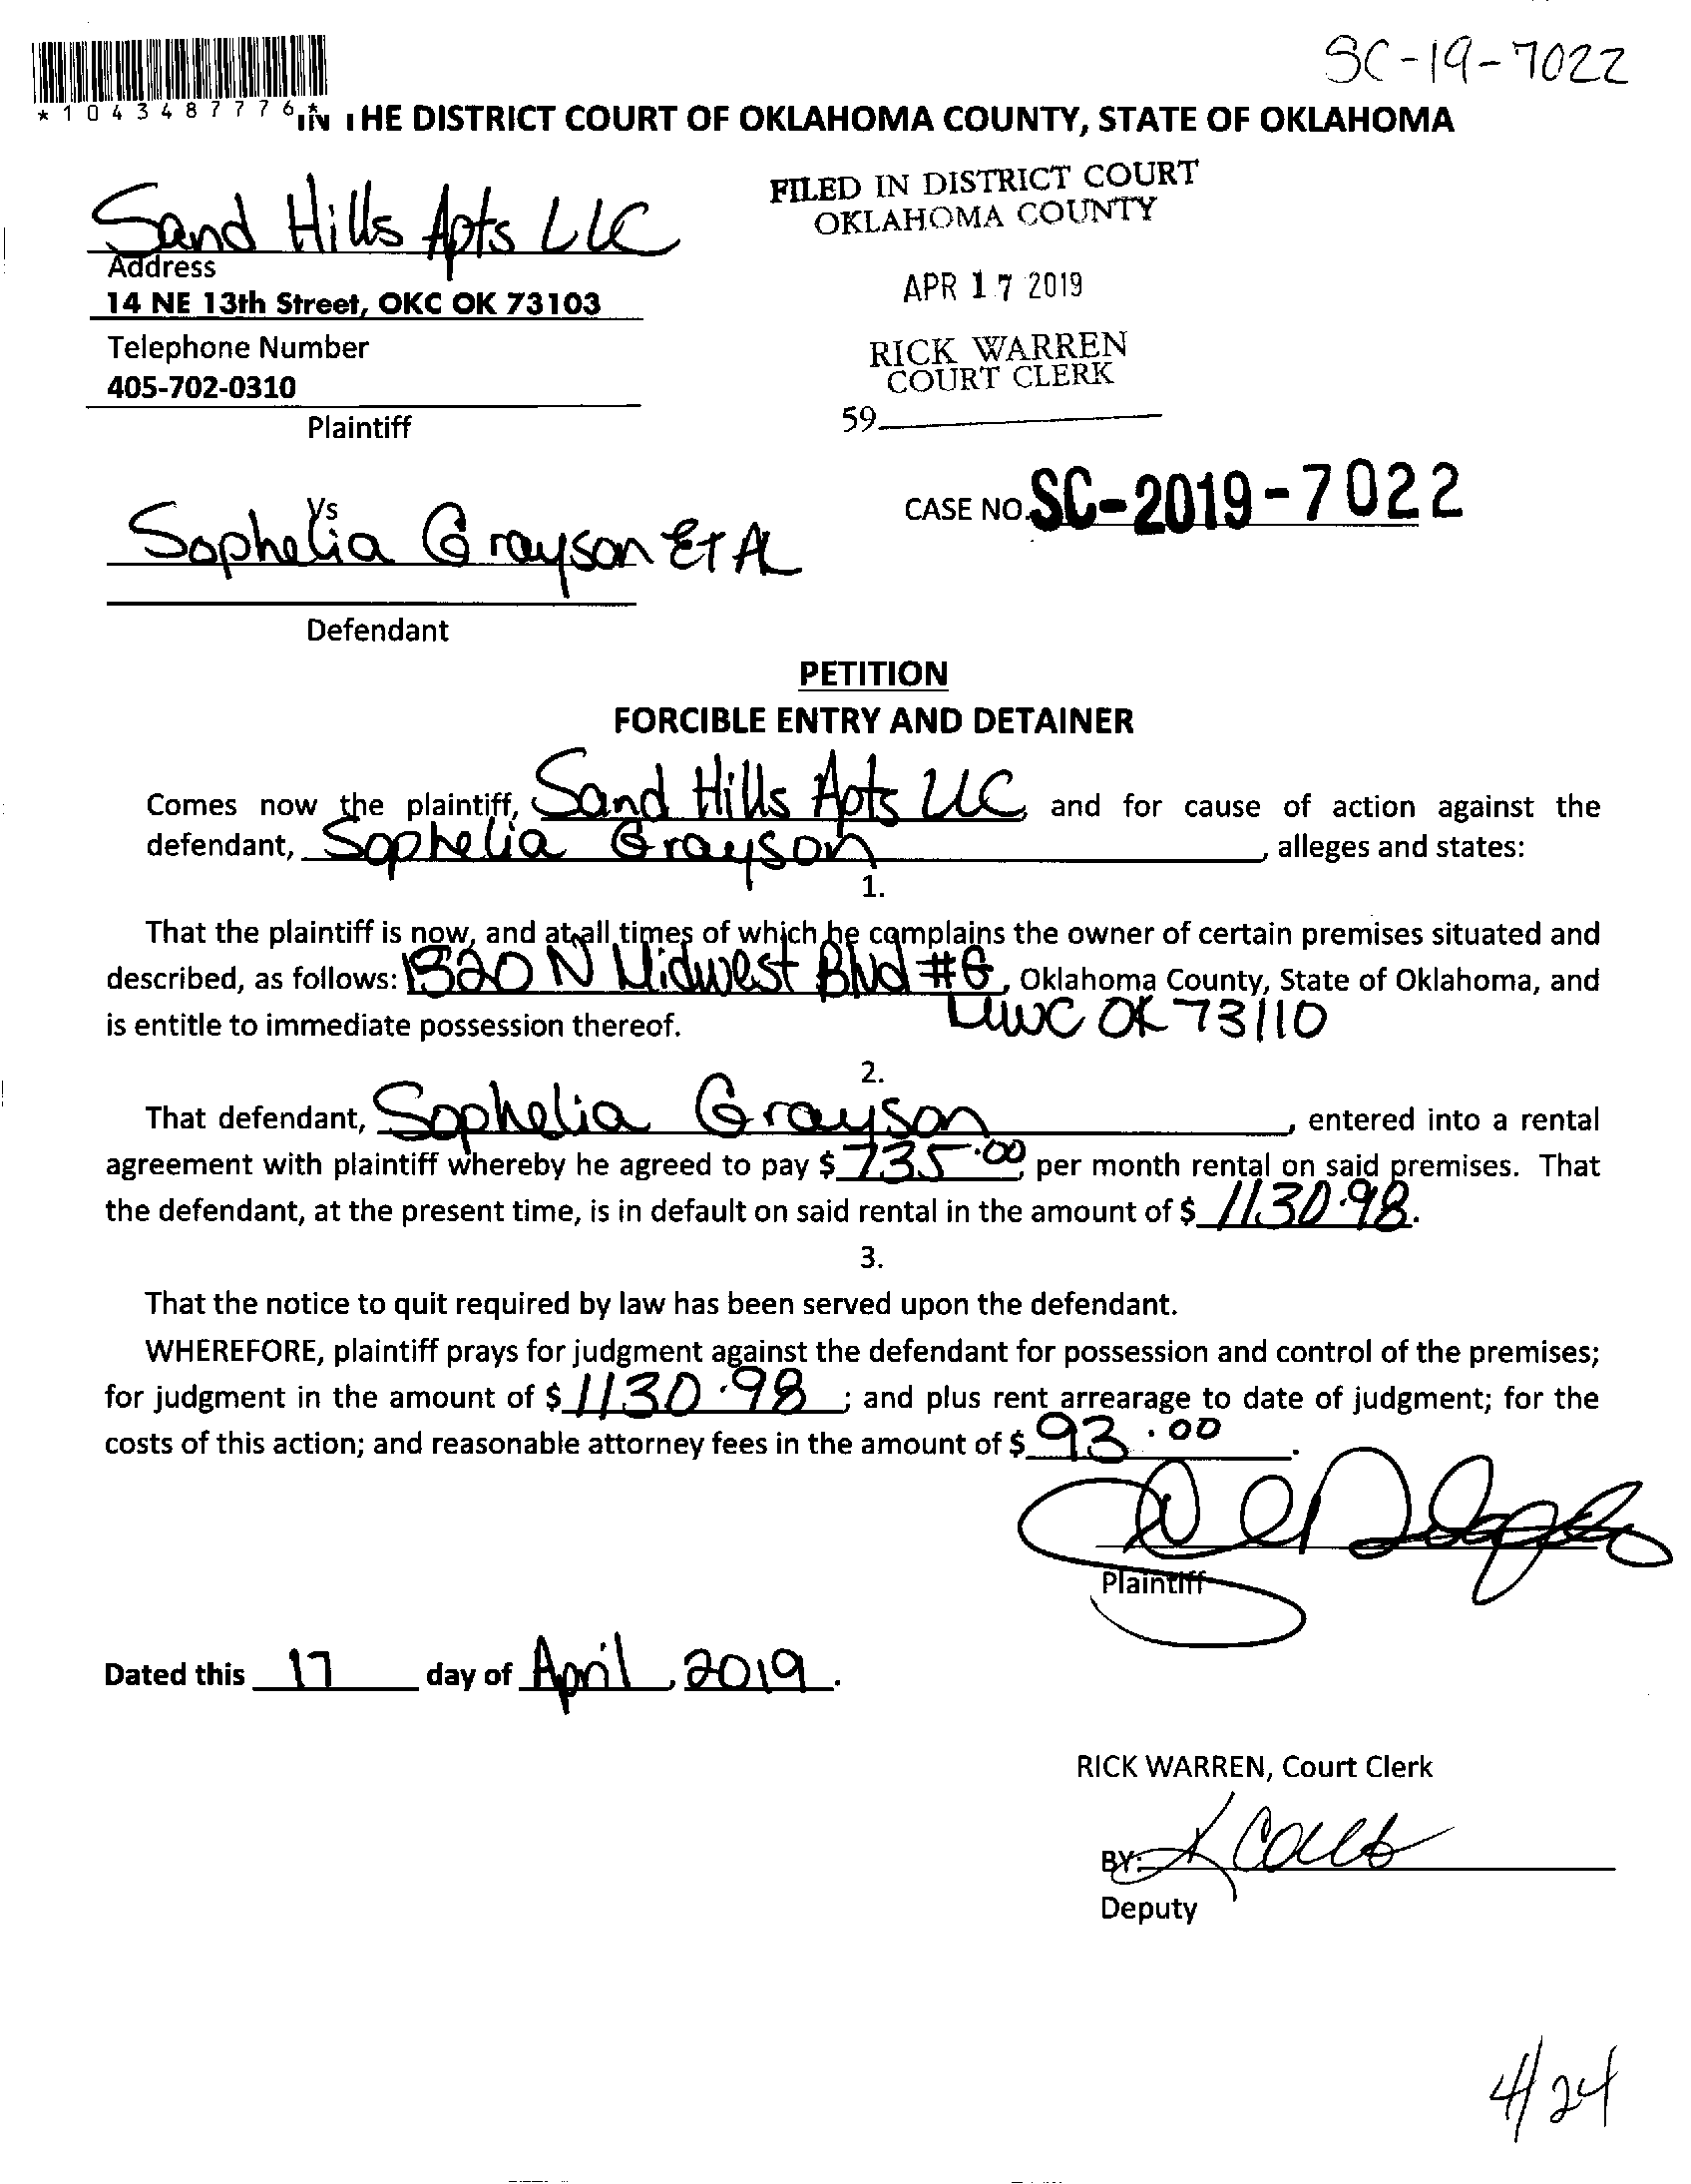 SC-19-7022
*1043487776*
IN THE DISTRICT COURT OF OKLAHOMA COUNTY, STATE OF OKLAHOMA
Sand Hills Apts LLC
Address
14 NE 13th Street, OKC OK 73103
Telephone Number
405-702-0310
Plaintiff
FILED IN DISTRICT COURT
OKLAHOMA COUNTY
APR 17 2019
RICK WARREN
COURT CLERK
59
CASE NO. SC-2019-7022
Vs
Sophelia Grayson Et Al
Defendant
PETITION
FORCIBLE ENTRY AND DETAINER
Comes now the plaintiff, Sand Hills Apts LLC, and for cause of action against the
defendant, Sophelia Grayson, alleges and states:
1.
That the plaintiff is now, and at all times of which he complains the owner of certain premises situated and
described, as follows: 1320 N Midwest Blvd #G, Oklahoma County, State of Oklahoma, and
MWC OK 73110
is entitle to immediate possession thereof.
2.
That defendant, Sophelia Grayson, entered into a rental
agreement with plaintiff whereby he agreed to pay $ 735.00, per month rental on said premises. That
the defendant, at the present time, is in default on said rental in the amount of $ 1130.98.
3.
That the notice to quit required by law has been served upon the defendant.
WHEREFORE, plaintiff prays for judgment against the defendant for possession and control of the premises;
for judgment in the amount of $ 1130.98; and plus rent arrearage to date of judgment; for the
costs of this action; and reasonable attorney fees in the amount of $ 93.00.
Plaintiff
Dated this 17 day of April, 2019.
RICK WARREN, Court Clerk
BY:
Deputy
4/24